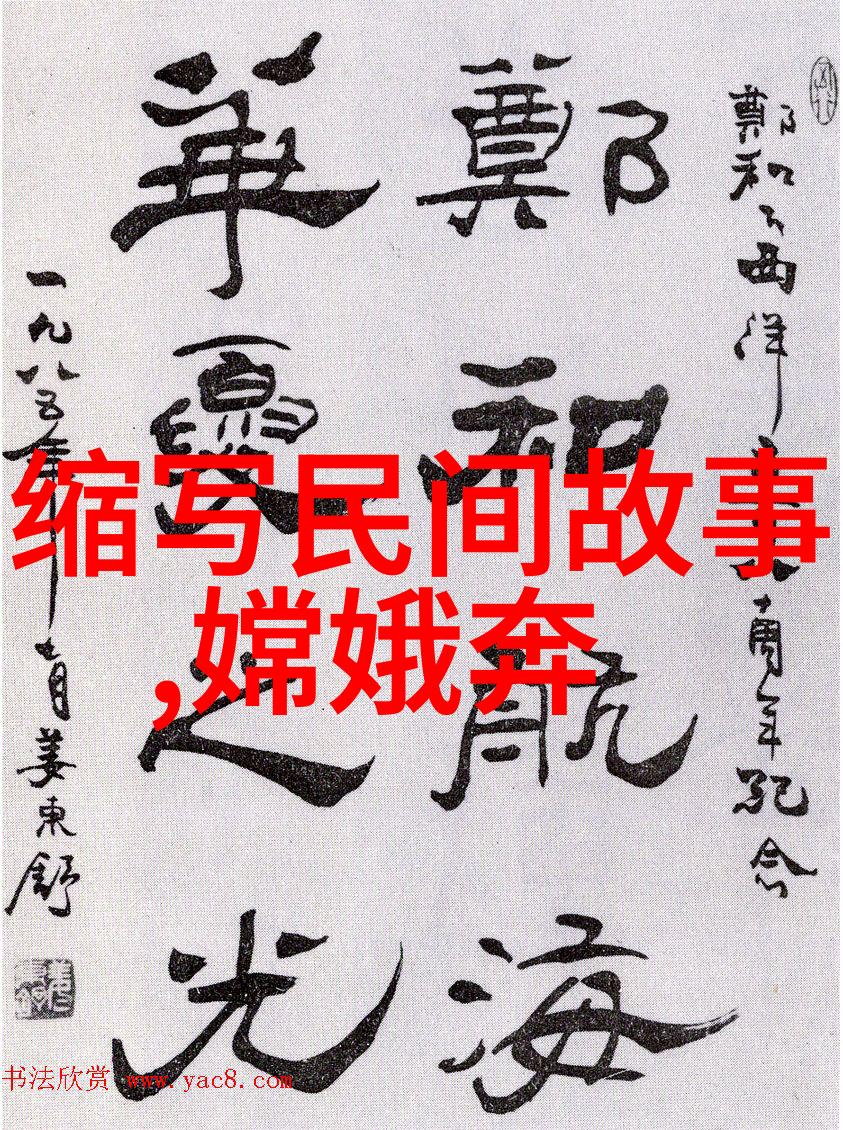 缩写民间故事
,嫦娥奔
鄭和下西洋
周年纪念
鄭和航海
華夏之光
一九八五年
七月姜東舒
书法欣赏 www.yac8.com